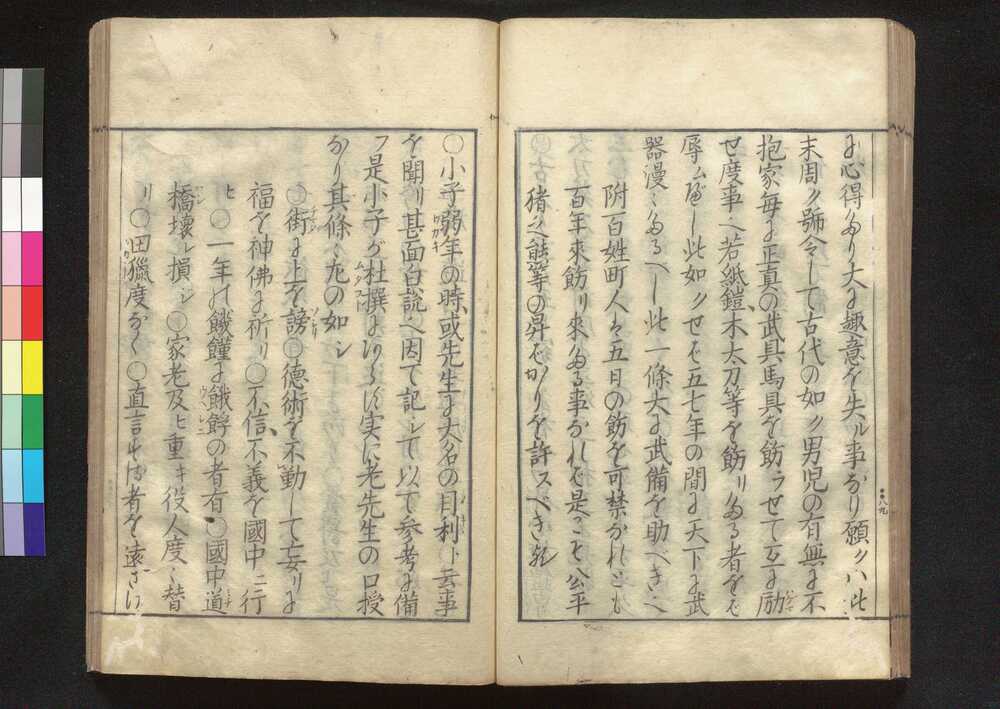 に心得たり大に趣意を失ル事なり願クハ此
末周ク號令して古代の如ク男児の有無に不
抱家毎に正真の武具馬具を飾ラせて互に励
せ度事へ若紙鎧木太刀等を飾リたる者をバ
辱ムべし此如クせバ五七年の間に天下に武
器漫々たるへし此一條大に武備を助べきへ
附百姓町人も五日の飾を可禁かれども
百年來飾リ來たる事なれバ是こそ公平
猪之熊等の昇ばかりを許スべき
八九
〇小子弱年の時或先生に大名の目利ト云事
を聞リ甚面白説へ因て記して以て参考に備
フ是小子が杜撰にあらす実に老先生の口授
なり其條々左の如シ
〇街に上を謗〇德術を不勤して妄リに
福を神佛に祈リ〇不信不義を國中ニ行
ヒ〇一年の饑饉に餓莩の者有〇國中道
橋壊レ損シ〇家老及ヒ重キ役人度々替
リ〇田獵度なく〇直言する者を遠ざけ